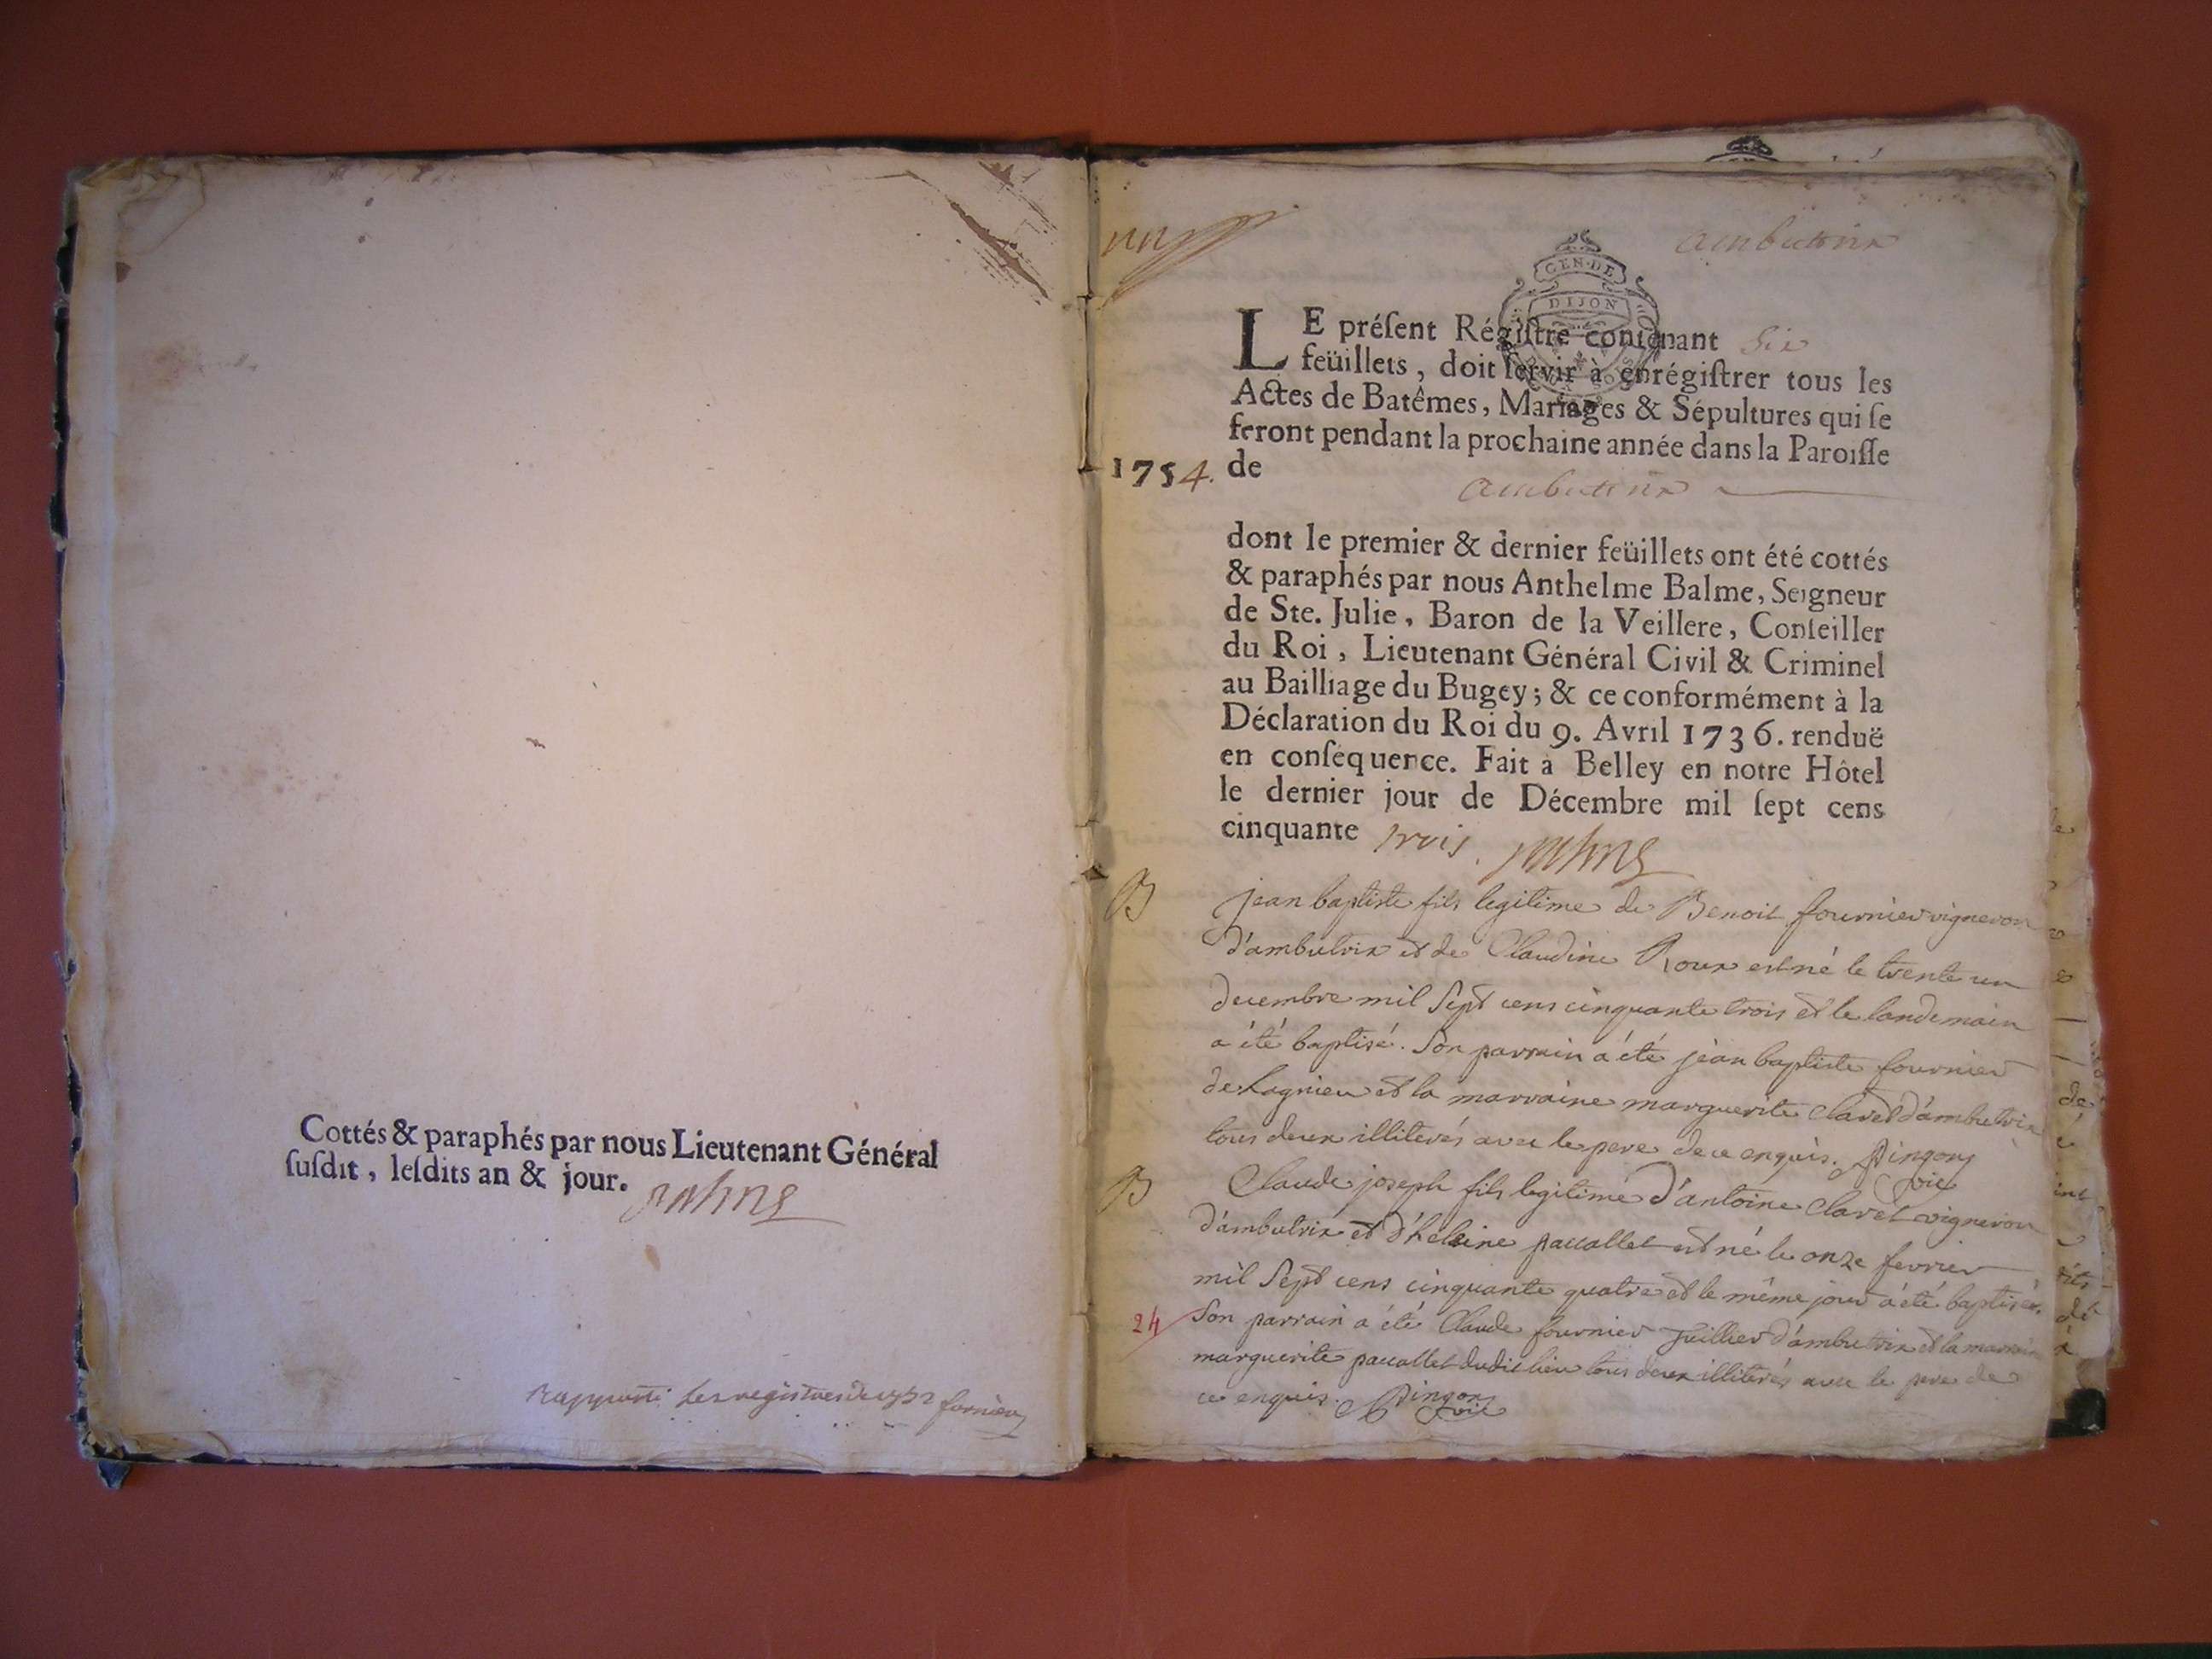 Cottés & paraphés par nous Lieutenant Général
ſuſdit, leſdits an & jour.
Rapporté les registres de 1752
ambutrix
GEN·DE
DIJON
LE préſent Régiſtre contenant Six
feüillets, doit ſervir à enrégiſtrer tous les
Actes de Batêmes, Mariages & Sépultures qui ſe
feront pendant la prochaine année dans la Paroiſſe
1754. de
ambutrix
dont le premier & dernier feüillets ont été cottés
& paraphés par nous Anthelme Balme, Seigneur
de Ste. Julie, Baron de la Veillere, Conſeiller
du Roi, Lieutenant Général Civil & Criminel
au Bailliage du Bugey; & ce conformément à la
Déclaration du Roi du 9. Avril 1736. renduë
en conſéquence. Fait à Belley en notre Hôtel
le dernier jour de Décembre mil ſept cens
cinquante trois.
B jean baptiste fils legitime de Benoit fournier vigneron
d'ambutrix et de Claudine Roux est né le trente un
decembre mil Sept cens cinquante trois et le landemain
a été baptisé. Son parrain a été jean baptiste fournier
de Lagnieu et la marraine marguerite Claret d'ambutrix
tous deux illiterés avec le pere de ce enquis. Pingon
vic
B Claude joseph fils legitime d'antoine Claret vigneron
d'ambutrix et d'heleine paccallet est né le onze fevrier
mil Sept cens cinquante quatre et le même jour a été baptisé.
24 Son parrain a été Claude fournier Juillier d'ambutrix et la marraine
marguerite paccallet dudit lieu tous deux illiterés avec le pere de
ce enquis. Pingon
vic